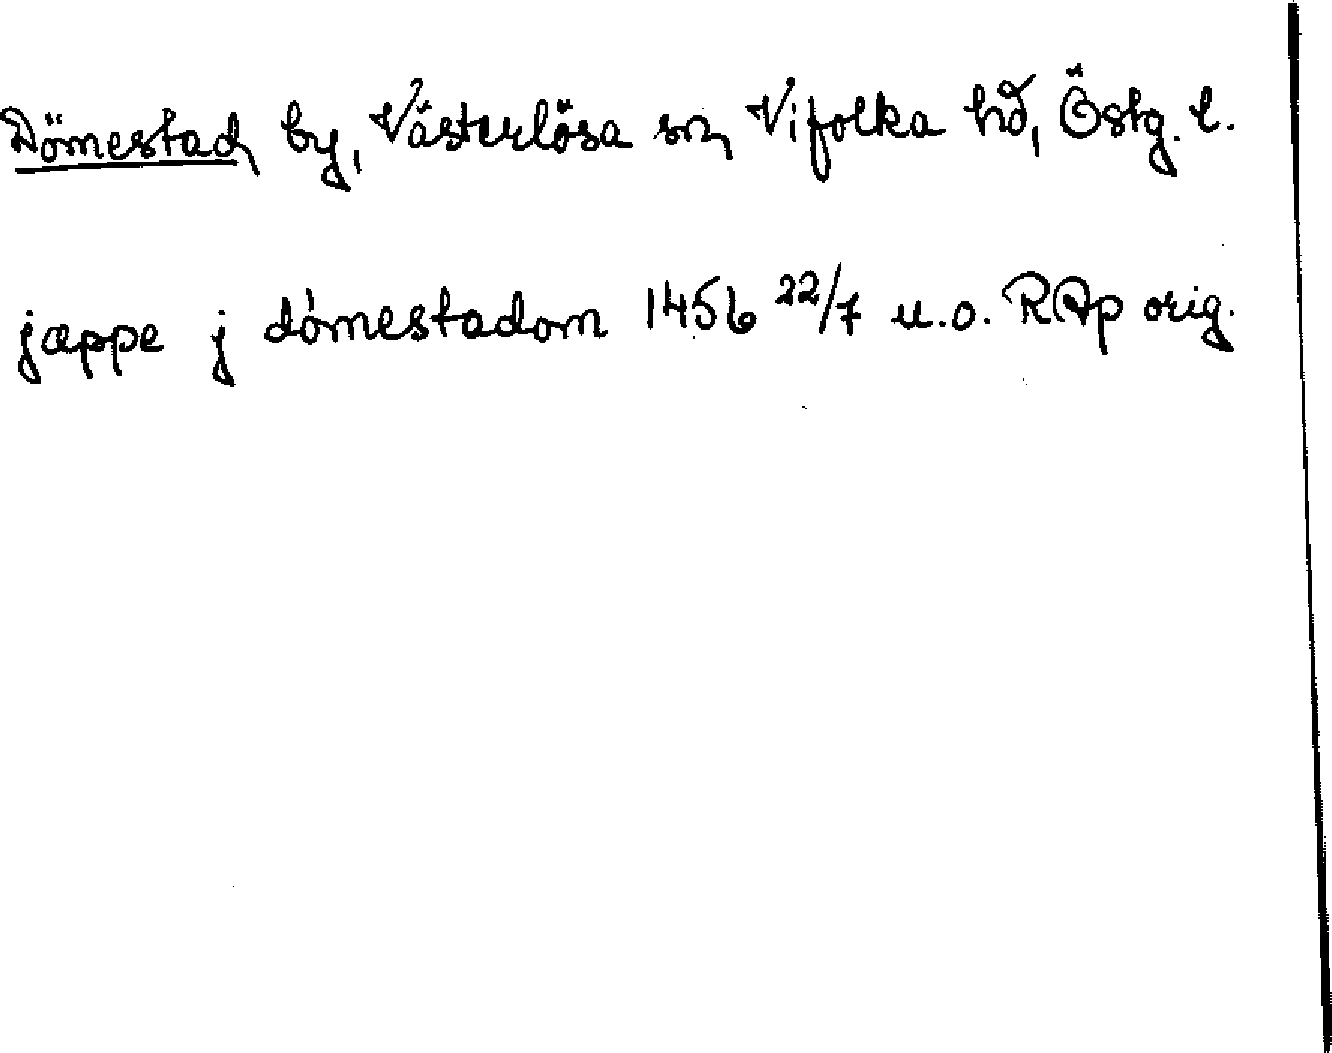 Dömestad by, Västerlösa sn, Vifolka hd, Östg. l.
jæppe j dómestadom 1456 22/7 u.o. RAp orig.